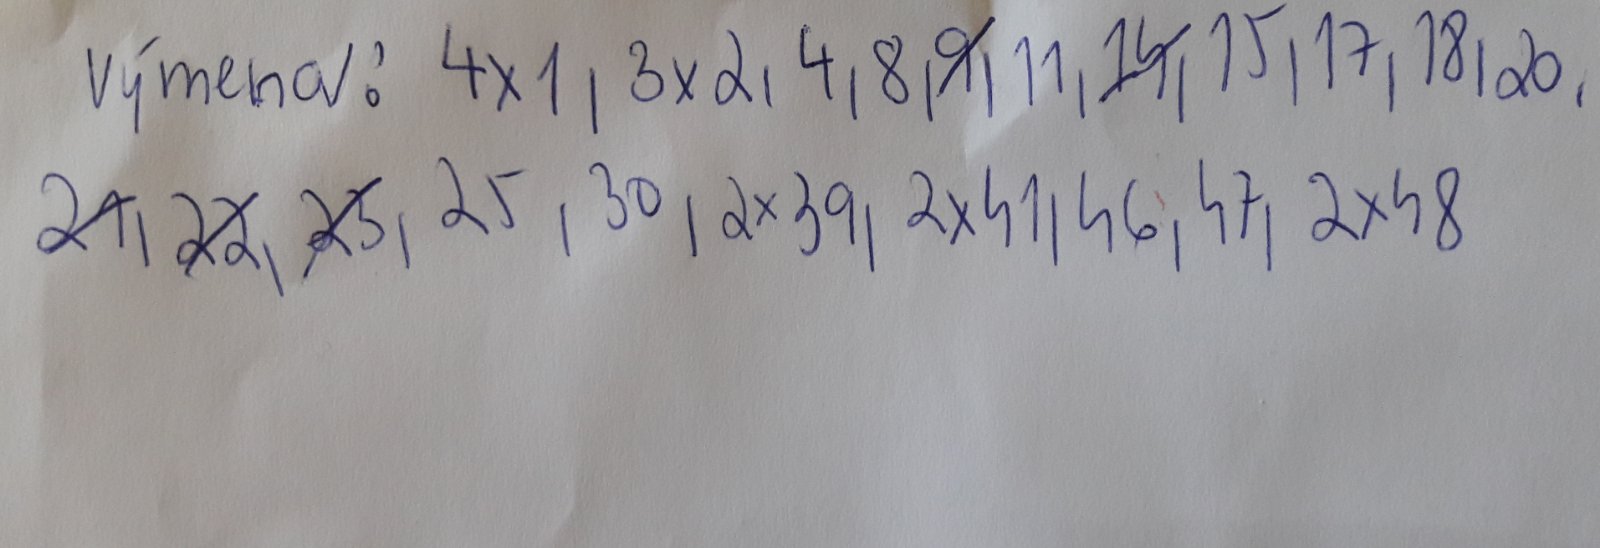 Výmena: 4x1, 3x2, 4, 8, 9, 11, 14, 15, 17, 18, 20,
21, 22, 23, 25, 30, 2x39, 2x41, 46, 47, 2x48